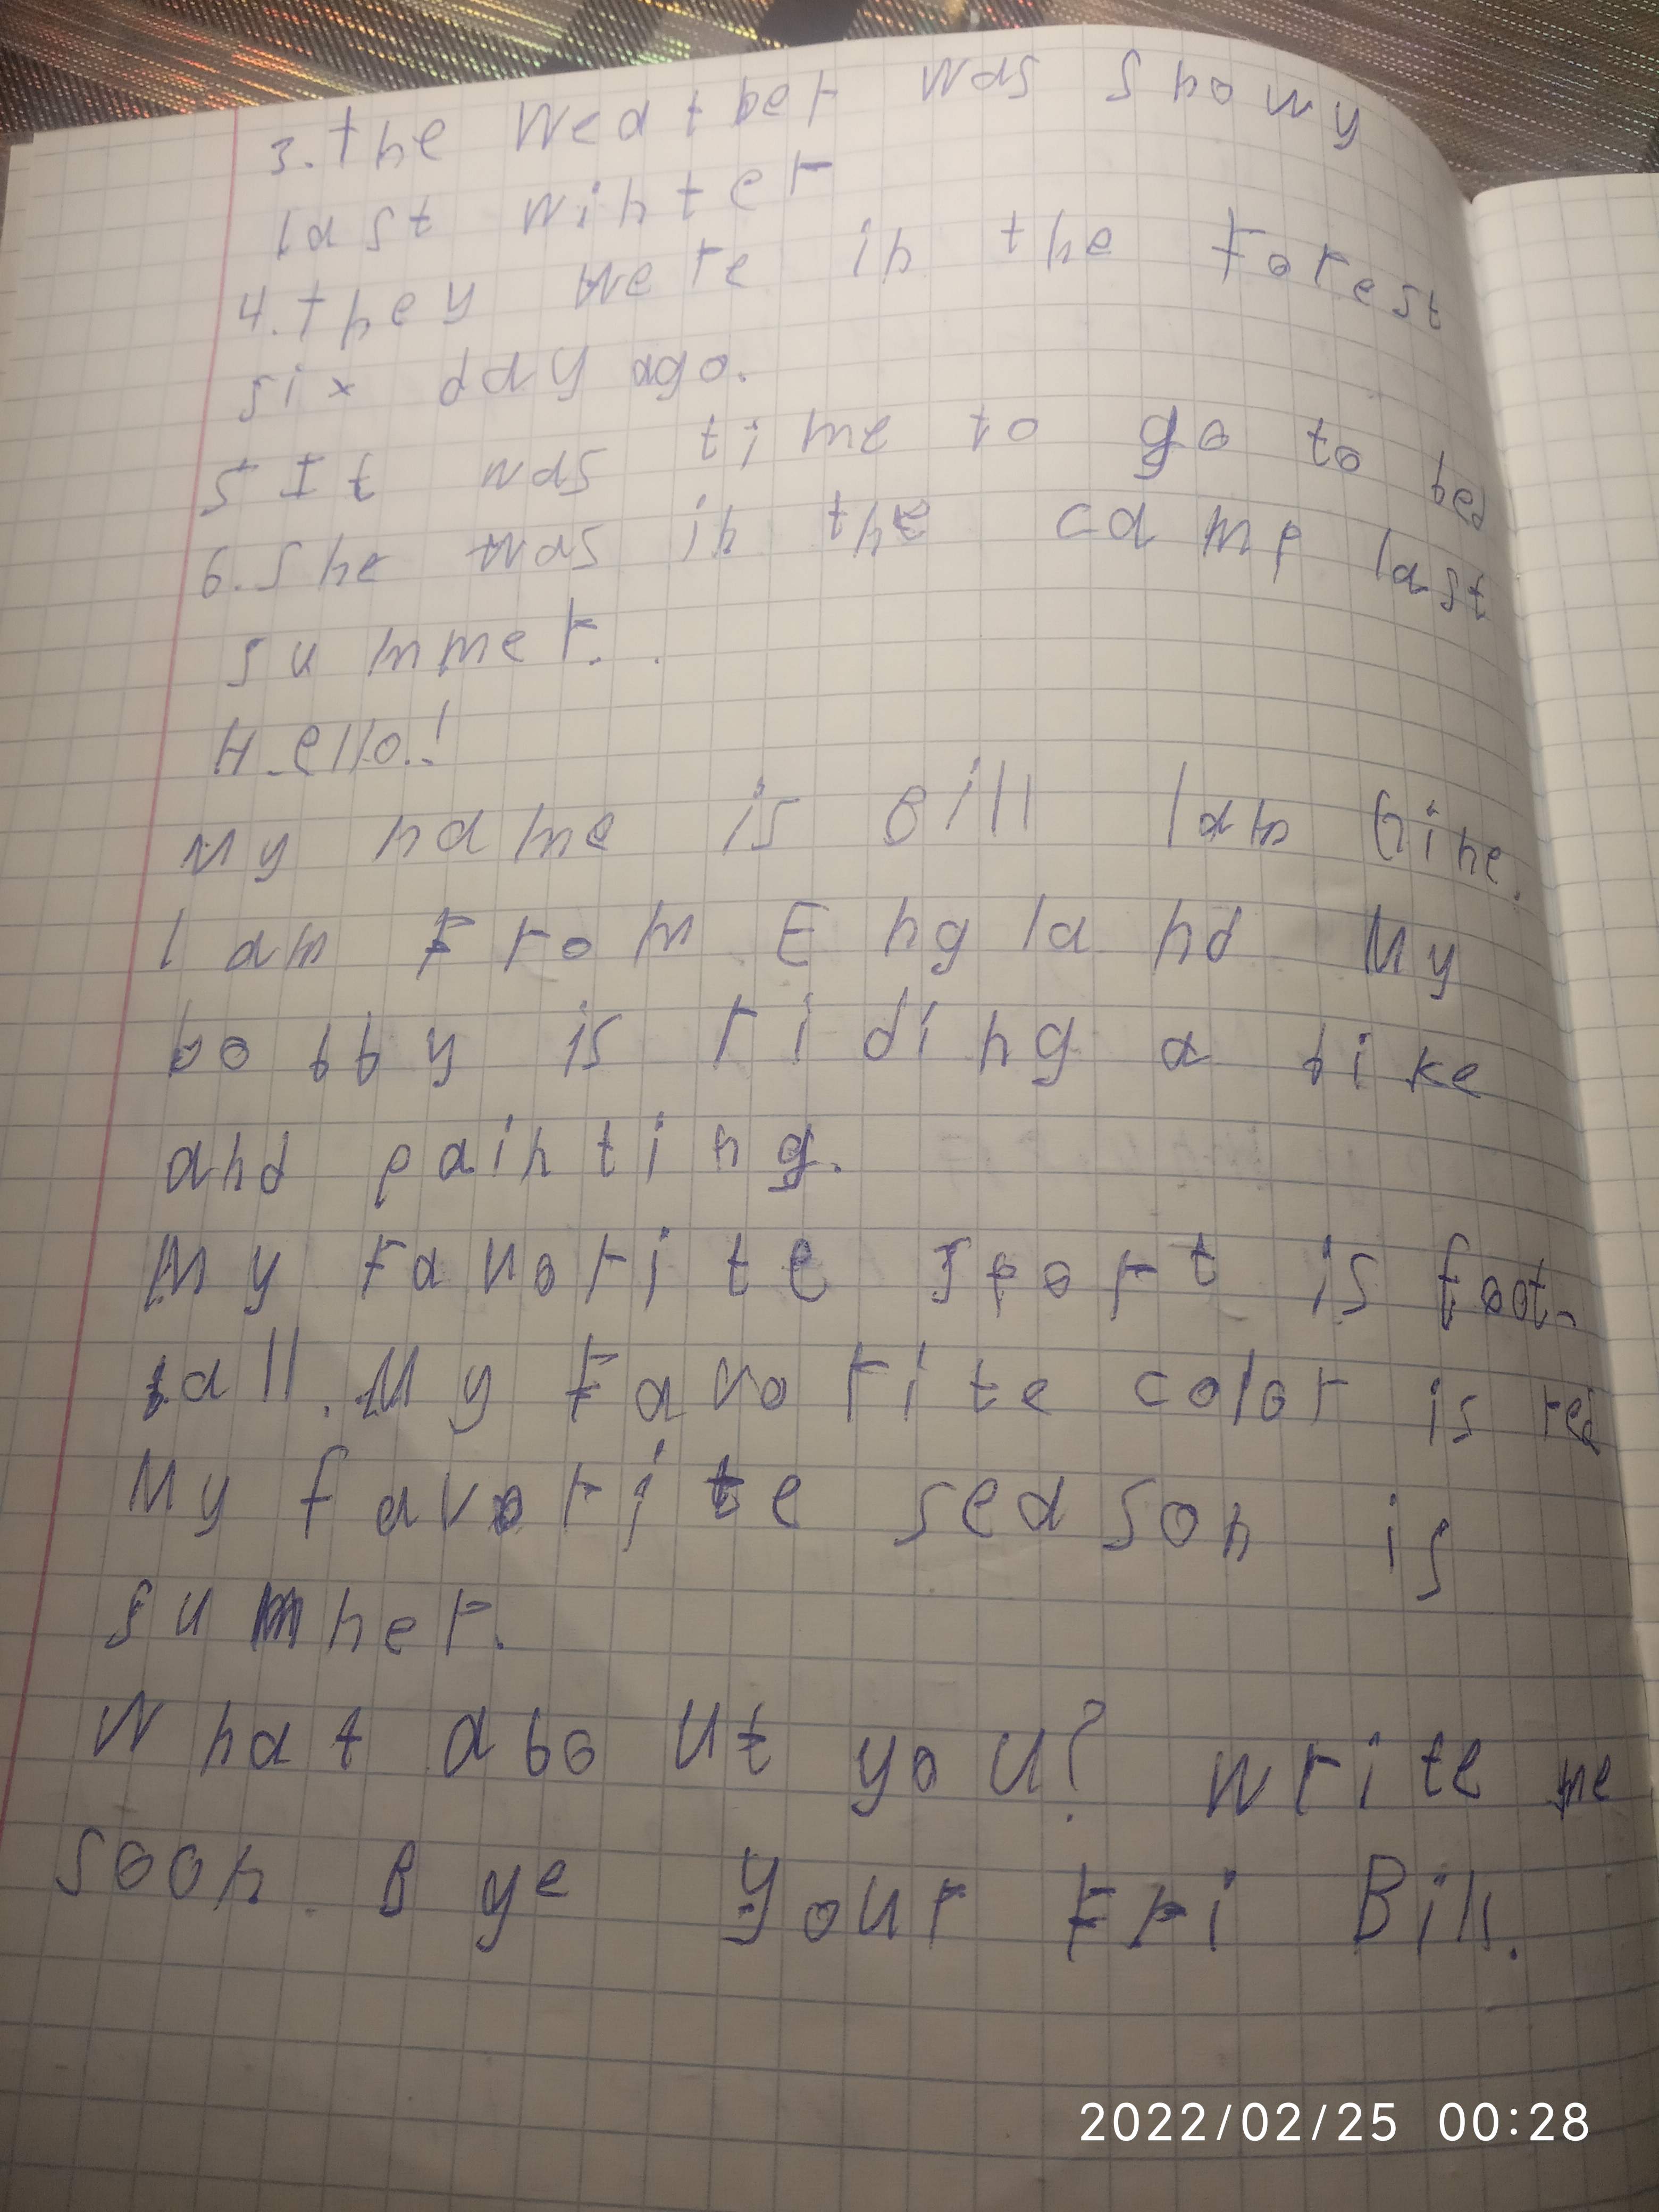 3. the Weatber was snowy
last winter
4. they were in the Forest
six day ago.
5 It was time to go to bed
6. She was in the camp last
summer.
Hello!
My name is Bill I am fine.
I am From England My
bobby is riding a bike
and painting.
My Favorite sport is foot-
ball. My Favorite color is red
My favorite season is
sumner.
What about you? write me
soon. Bye your Fri Bill.
2022/02/25 00:28